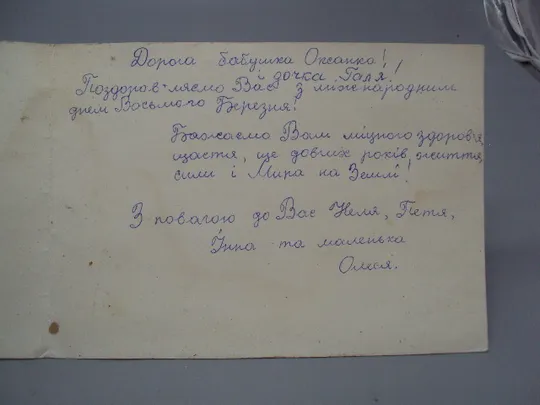 Дорога бабушка Оксанка!
й дочка Галя!
Поздоровляємо Вас з міжнародним
днем Восьмого Березня!
Бажаємо Вам міцного здоров'я,
щастя, ще довгих років життя,
сили і Мира на Землі!
З повагою до Вас Неля, Петя,
Інна та маленька
Олеся.